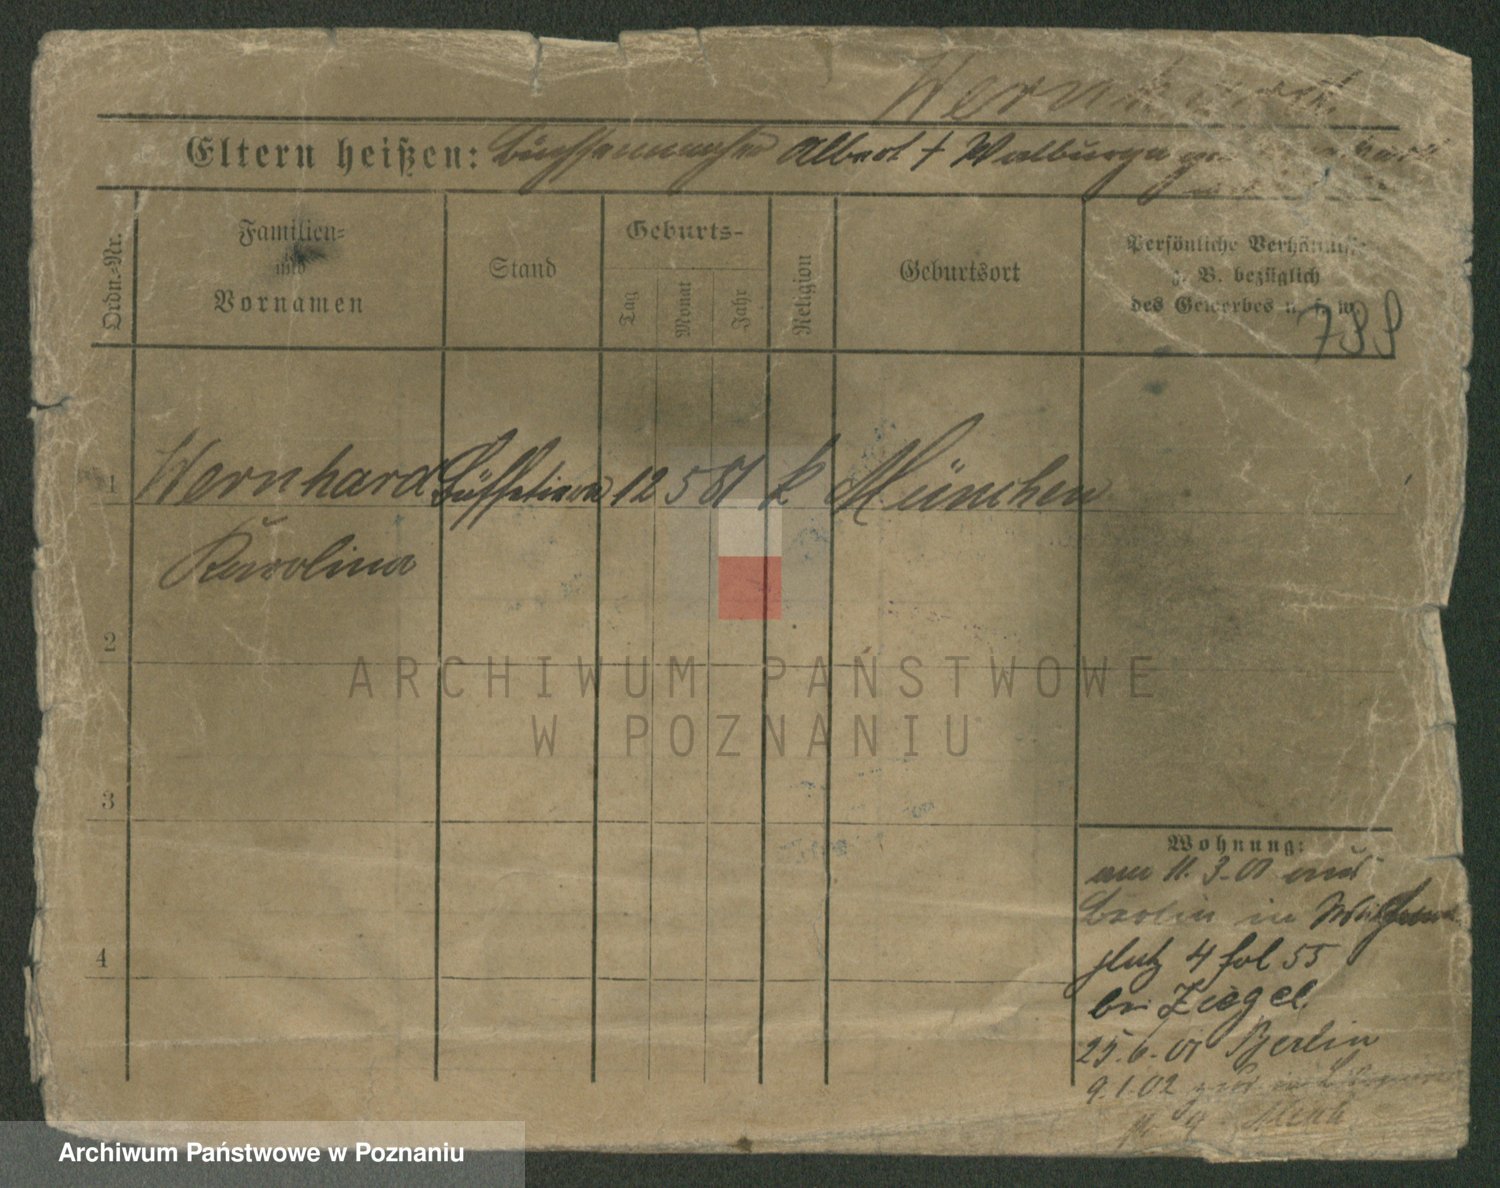 Wernhard
Eltern heißen: Büchsenmacher Albert † Walburga
Ordn.-Nr.
Familien-
und
Vornamen
Stand
Geburts-
Tag
Monat
Jahr
Religion
Geburtsort
Persönliche Verhältnisse
z. B. bezüglich
des Gewerbes u. s. w.
799
1 Wernhard 12 5 81 k München
Karolina
2
3
4
Wohnung:
am 11.3.01 aus
Berlin in
platz 4 fol 55
bei Ziegel.
25.6.01 Berlin
9.1.02
ARCHIWUM PAŃSTWOWE
W POZNANIU
Archiwum Państwowe w Poznaniu